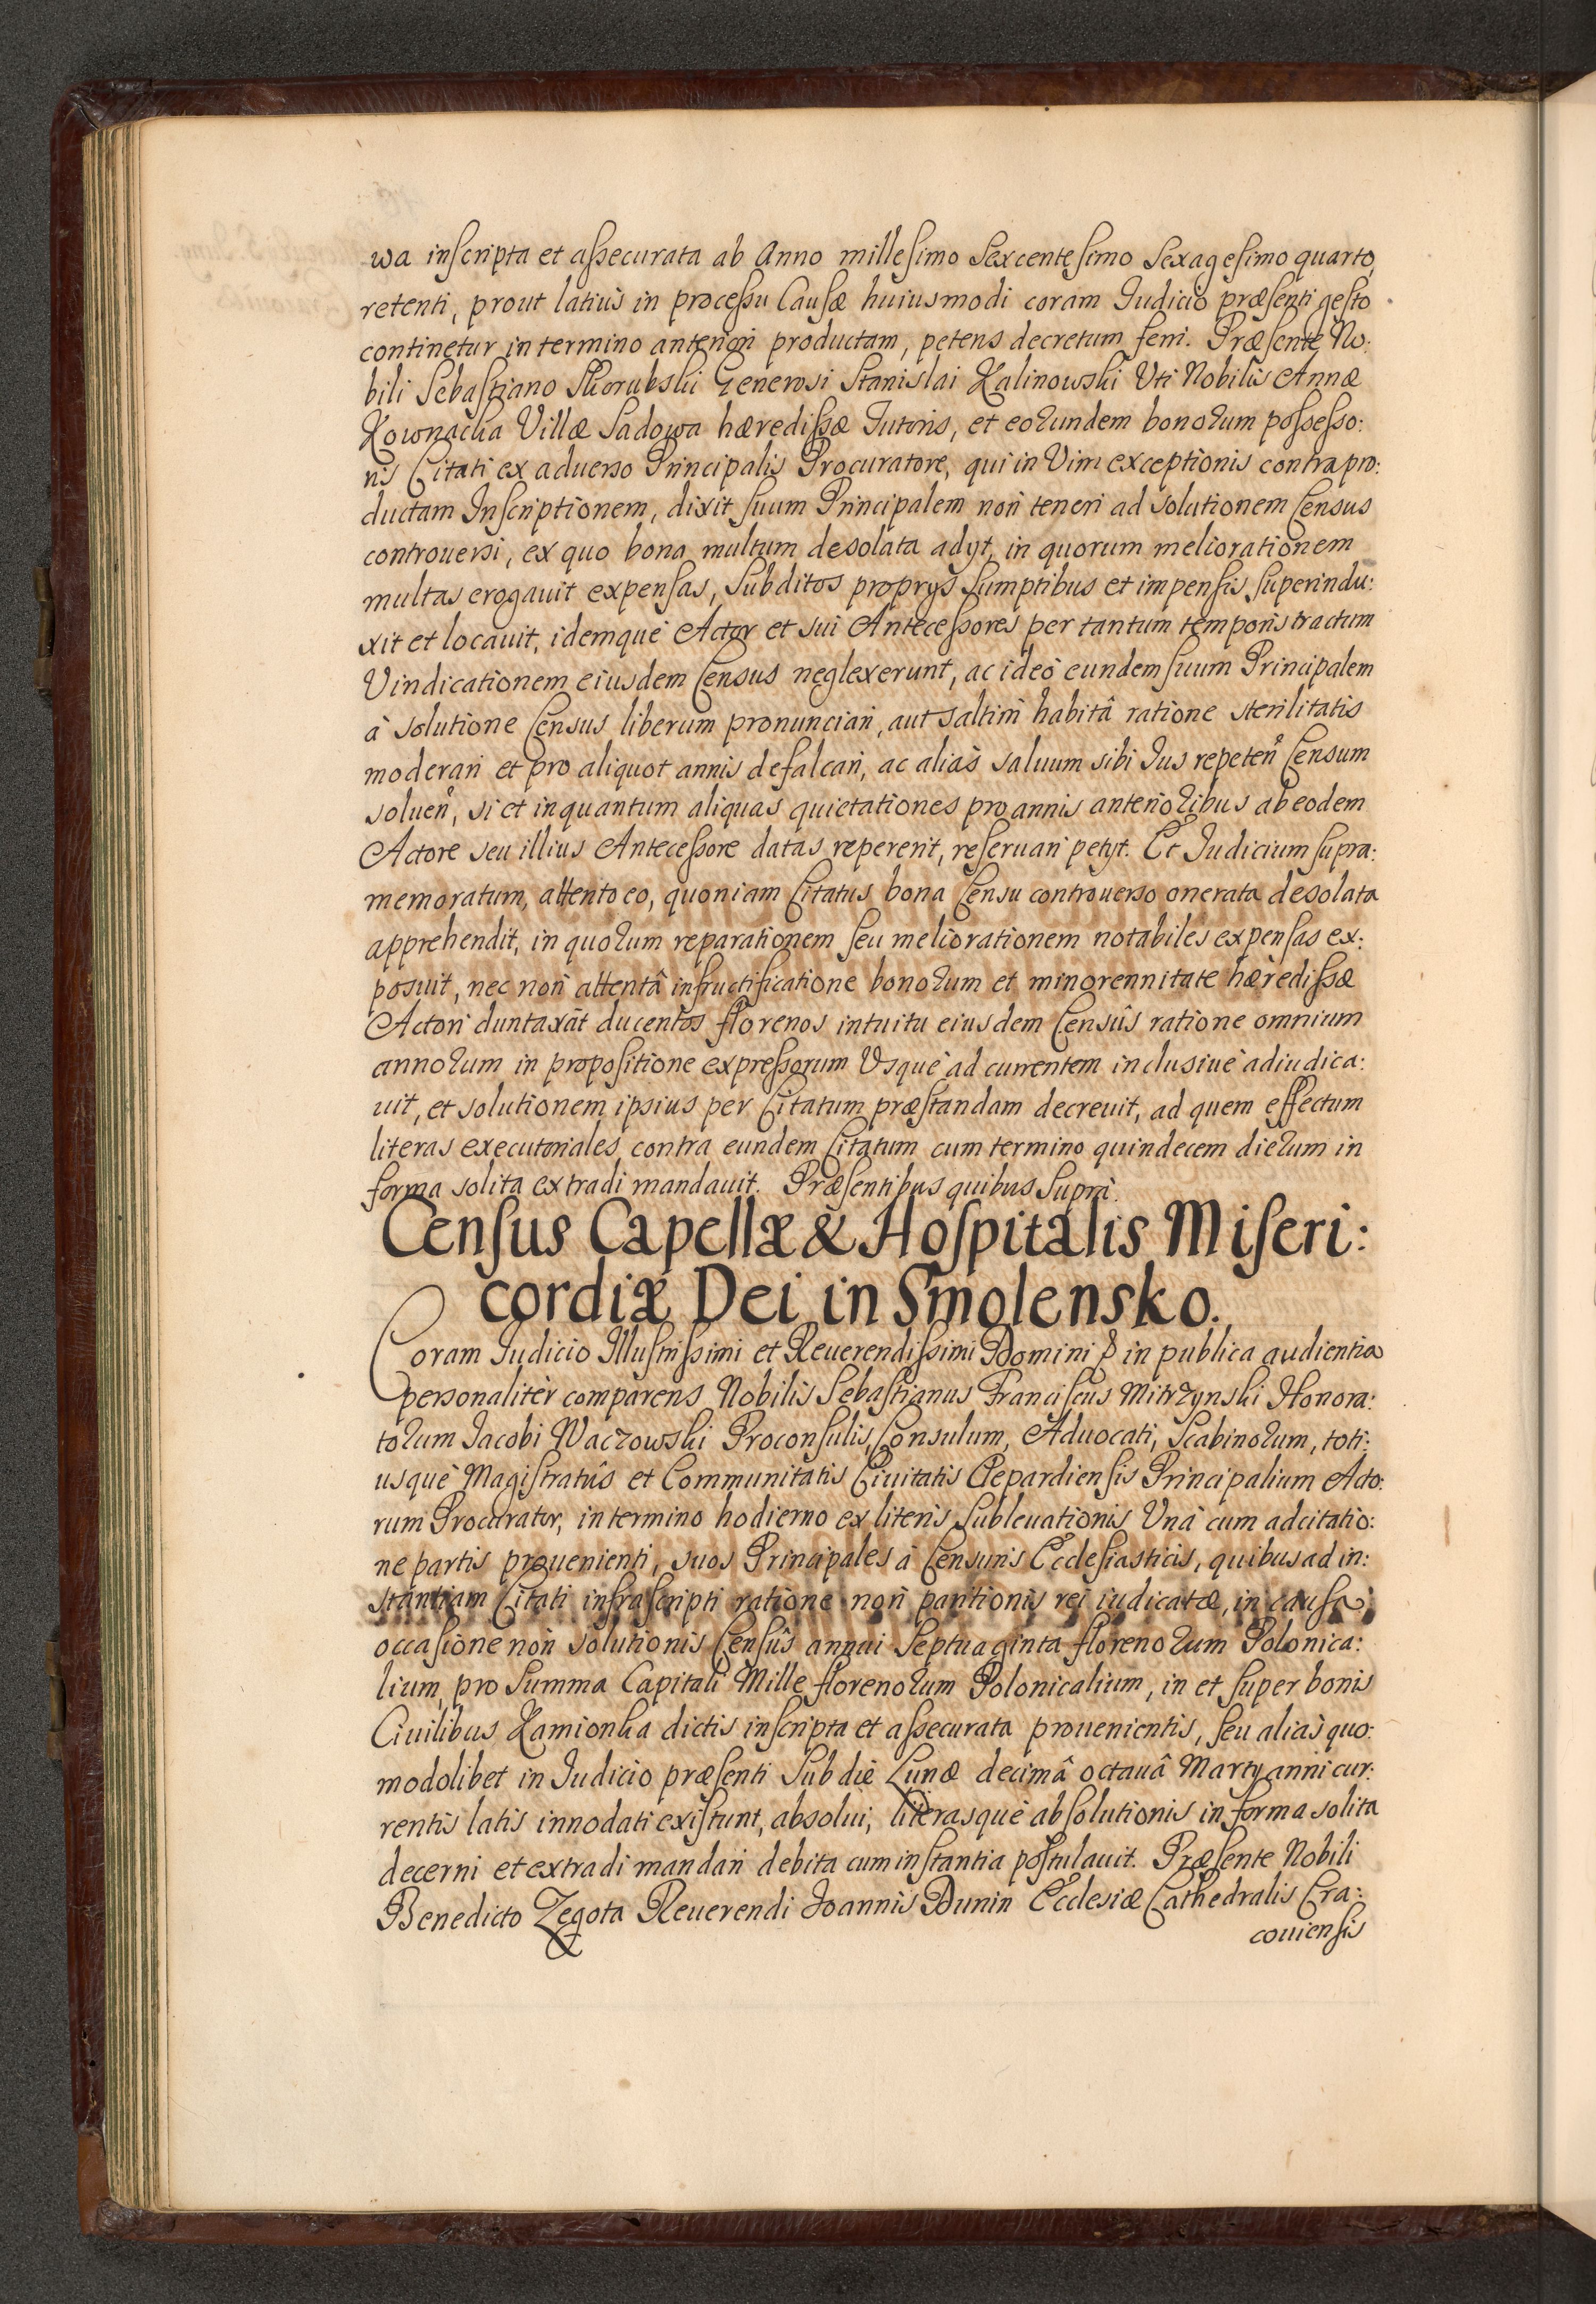 wa inscripta et assecurata ab Anno millesimo Sexcentesimo Sexagesimo quarto,
retenti, prout latius in processu Causæ huiusmodi coram Iudicio præsenti gesto
continetur in termino anteriori productam, petens decretum ferri. Præsente No:
bili Sebastiano Skorubski Generosi Stanislai Kalinowski Uti Nobilis Annæ
Kownacka Villæ Sadowa hæredissæ Tutoris, et eorundem bonorum possesso:
ris Citati ex aduerso Principalis Procuratore, qui in Vim exceptionis contra pro:
ductam Inscriptionem, dixit suum Principalem non teneri ad solutionem Census
controuersi, ex quo bona multum desolata adijt, in quorum meliorationem
multas erogauit expensas, Subditos proprijs sumptibus et impensis superindu:
xit et locauit, idemque Actor et sui Antecessores per tantum temporis tractum
Vindicationem eiusdem Census neglexerunt, ac ideò eundem suum Principalem
à solutione Census liberum pronunciari, aut saltim habitâ ratione sterilitatis
moderari et pro aliquot annis defalcari, ac aliàs saluum sibi Ius repeten Censum
soluen, si et inquantum aliquas quietationes pro annis anterioribus ab eodem
Actore seu illius Antecessore datas repererit, reseruari petijt. Et Iudicium supra:
memoratum, attento eo, quoniam Citatus bona Censu controuerso onerata desolata
apprehendit, in quorum reparationem seu meliorationem notabiles expensas ex:
posuit, nec non attentâ infructificatione bonorum et minorennitate hæredissæ
Actori duntaxàt ducentos florenos intuitu eiusdem Censûs ratione omnium
annorum in propositione expressorum Usque ad currentem inclusiuè adiudica:
uit, et solutionem ipsius per Citatum præstandam decreuit, ad quem effectum
literas executoriales contra eundem Citatum cum termino quindecem dierum in
forma solita extradi mandauit. Præsentibus quibus Suprà.
Census Capellæ & Hospitalis Miseri:
cordiæ Dei in Smolensko.
Coram Iudicio Illustrissimi et Reuerendissimi Domini & in publica audientia
personalitèr comparens Nobilis Sebastianus Franciscus Mitrzynski Honora:
torum Iacobi Waczowski Proconsulis, Consulum, Aduocati, Scabinorum, toti:
usque Magistratûs et Communitatis Ciuitatis Clepardiensis Principalium Acto:
rum Procurator, in termino hodierno ex literis Subleuationis Unà cum adcitatio:
ne partis prouenienti, suos Principales à Censuris Ecclesiasticis, quibus ad in:
stantiam Citati infrascripti ratione non paritionis rei iudicatæ, in causa
occasione non solutionis Censûs annui Septuaginta florenorum Polonica:
lium, pro Summa Capitali Mille florenorum Polonicalium, in et super bonis
Ciuilibus Kamionka dictis inscripta et assecurata prouenientis, seu aliàs quo:
modolibet in Iudicio præsenti Sub die Lunæ decimâ octauâ Martij anni cur:
rentis latis innodati existunt, absolui, literasque absolutionis in forma solita
decerni et extradi mandari debita cum instantia postulauit. Præsente Nobili
Benedicto Zegota Reuerendi Ioannis Dunin Ecclesiæ Cathedralis Cra:
couiensis